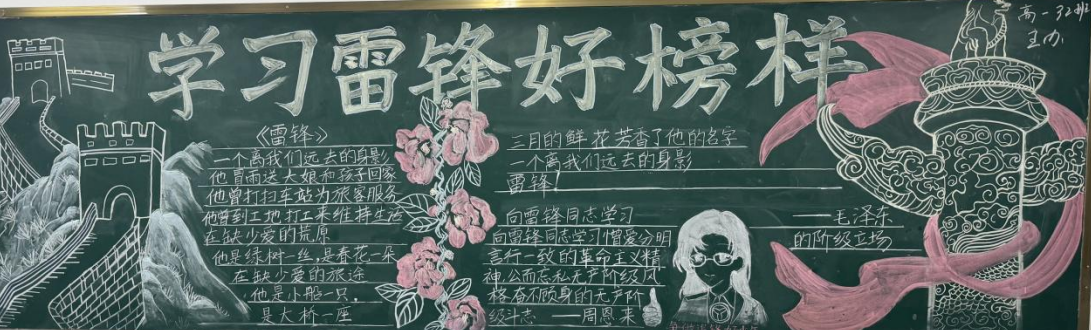 学习雷锋好榜样
高一32班
主办
《雷锋》
一个离我们远去的身影
他冒雨送大娘和孩子回家
他曾打扫车站为旅客服务
他曾到工地打工来维持生活
在缺少爱的荒原
他是绿树一丝,是春花一朵
在缺少爱的旅途
他是小船一只,
是大桥一座
三月的鲜花芳香了他的名字
一个离我们远去的身影
雷锋!
向雷锋同志学习
——毛泽东
向雷锋同志学习憎爱分明
的阶级立场
言行一致的革命主义精
神,公而忘私无产阶级风
格奋不顾身的无产阶
级斗志 ——周恩来